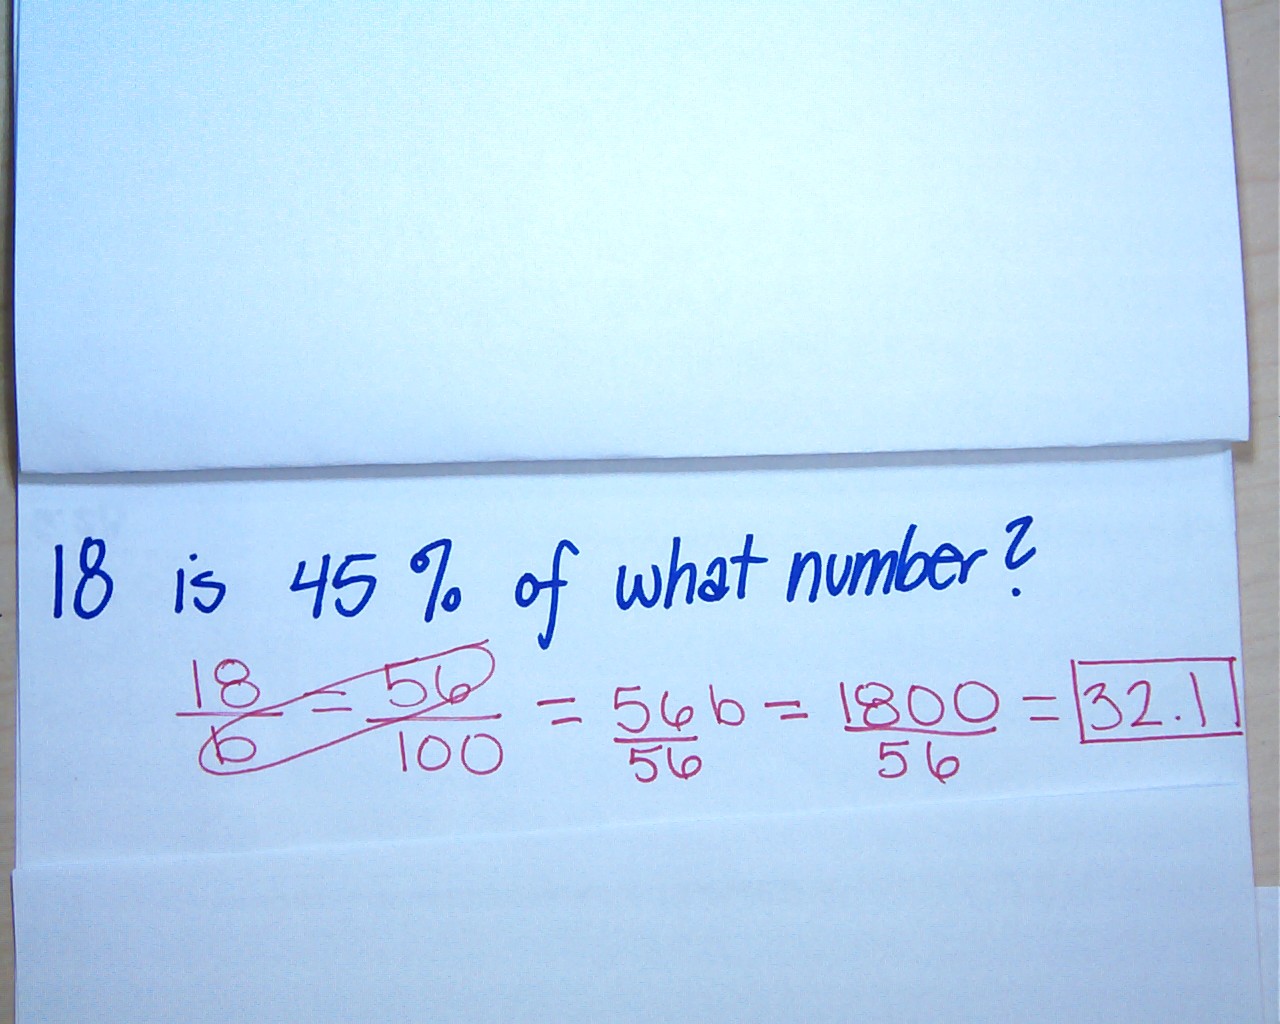 18 is 45% of what number?
18/b = 56/100 = 56b/56 = 1800/56 = 32.1